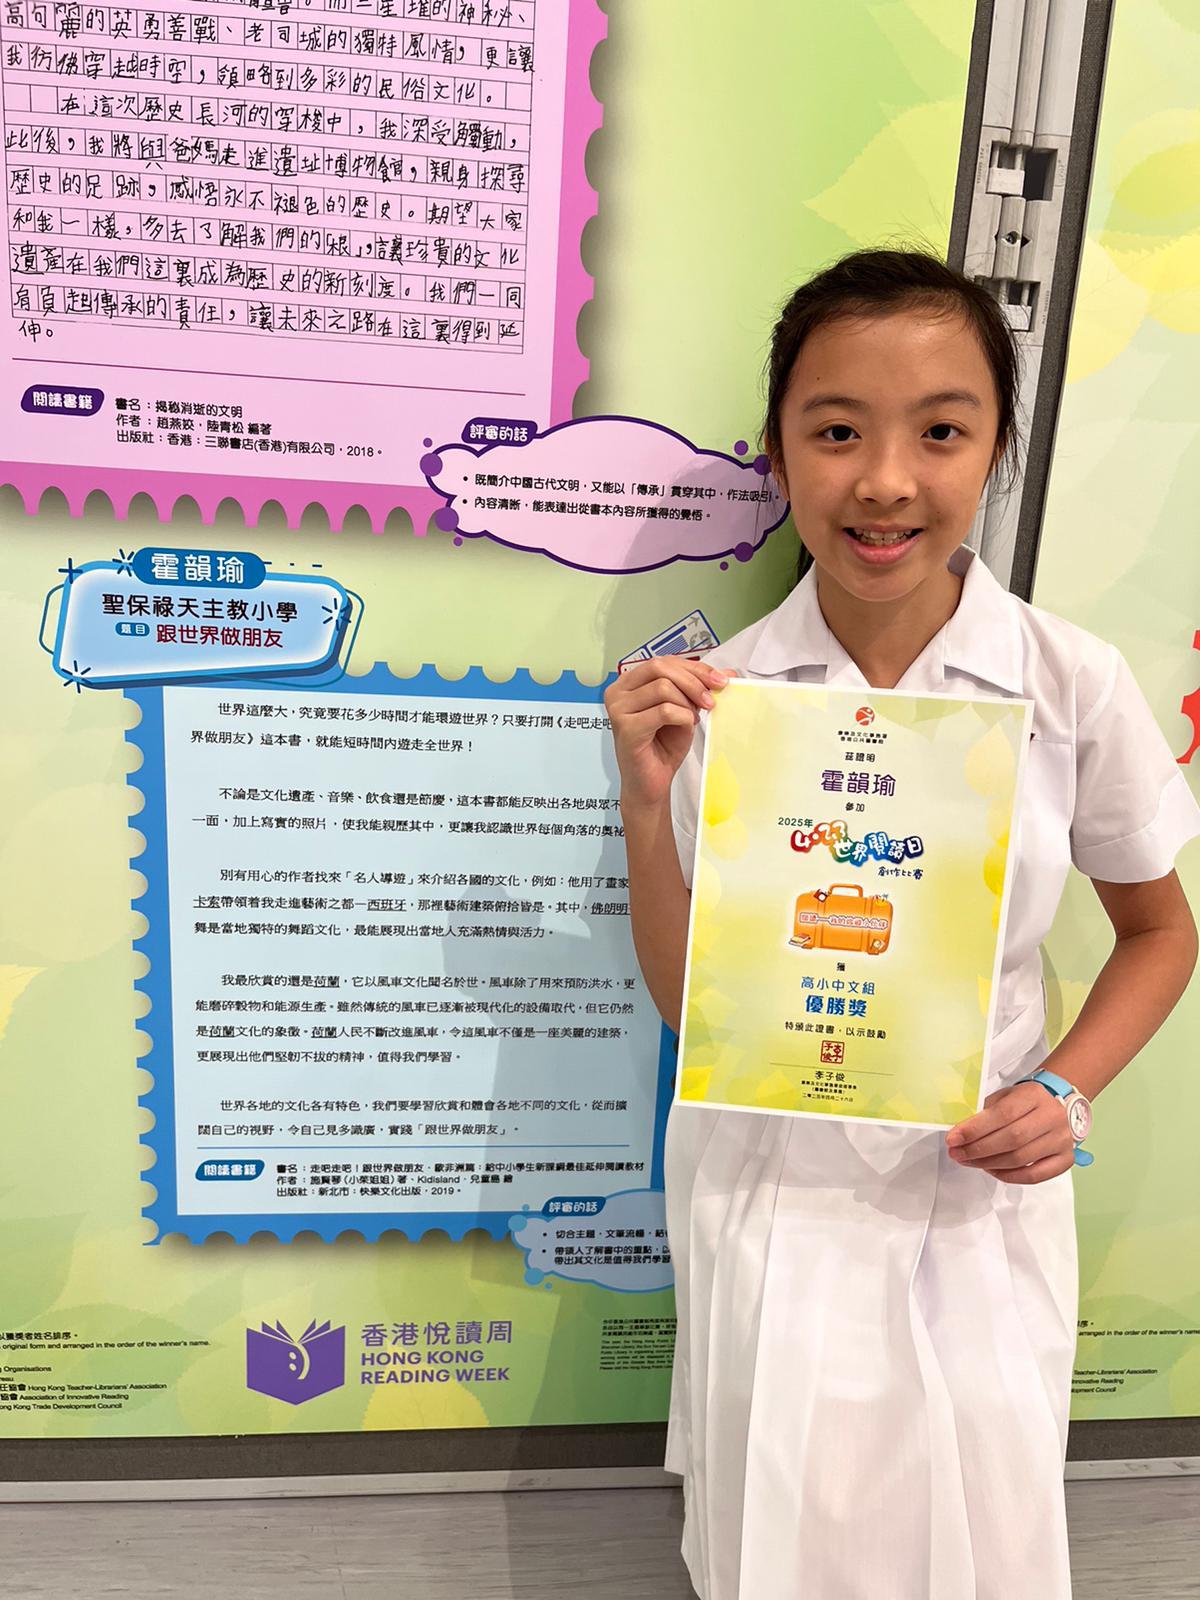 高句麗的英勇善戰、老司城的獨特風情，更讓
我彷彿穿越時空，領略到多彩的民俗文化。
在這次歷史長河的穿梭中，我深受觸動，
此後，我將與爸媽走進遺址博物館，親身探尋
歷史的足跡，感悟永不褪色的歷史。期望大家
和我一樣，多去了解我們的「根」，讓珍貴的文化
遺產在我們這裏成為歷史的新刻度。我們一同
肩負起傳承的責任，讓未來之路在這裏得到延
伸。
閱讀書籍
書名：揭秘消逝的文明
作者：趙燕姣，陸青松 編著
出版社：香港：三聯書店(香港)有限公司，2018。
評審的話
• 既簡介中國古代文明，又能以「傳承」貫穿其中，作法吸引。
• 內容清晰，能表達出從書本內容所獲得的覺悟。
霍韻瑜
聖保祿天主教小學
題目 跟世界做朋友
世界這麼大，究竟要花多少時間才能環遊世界？只要打開《走吧走吧
界做朋友》這本書，就能短時間內遊走全世界！
不論是文化遺產、音樂、飲食還是節慶，這本書都能反映出各地與眾不
一面，加上寫實的照片，使我能親歷其中，更讓我認識世界每個角落的奧祕
別有用心的作者找來「名人導遊」來介紹各國的文化，例如：他用了畫家
卡索帶領着我走進藝術之都—西班牙，那裡藝術建築俯拾皆是。其中，佛朗明
舞是當地獨特的舞蹈文化，最能展現出當地人充滿熱情與活力。
我最欣賞的還是荷蘭，它以風車文化聞名於世。風車除了用來預防洪水，更
能磨碎穀物和能源生產。雖然傳統的風車已逐漸被現代化的設備取代，但它仍然
是荷蘭文化的象徵。荷蘭人民不斷改進風車，令這風車不僅是一座美麗的建築，
更展現出他們堅韌不拔的精神，值得我們學習。
世界各地的文化各有特色，我們要學習欣賞和體會各地不同的文化，從而擴
闊自己的視野，令自己見多識廣，實踐「跟世界做朋友」。
閱讀書籍
書名：走吧走吧！跟世界做朋友．歐非洲篇：給中小學生新課綱最佳延伸閱讀教材
作者：施賢琴（小茱姐姐）著、Kidisland．兒童島 繪
出版社：新北市：快樂文化出版，2019。
評審的話
• 切合主題，文筆流暢，結
• 帶領人了解書中的重點，以
帶出其文化是值得我們學習
香港悅讀周
HONG KONG
READING WEEK
以獲獎者姓名排序。
original form and arranged in the order of the winner's name.
Organisations
任協會 Hong Kong Teacher-Librarians' Association
協會 Association of Innovative Reading
Hong Kong Trade Development Council
康樂及文化事務署
香港公共圖書館
茲證明
霍韻瑜
參加
2025年
4.23世界閱讀日
創作比賽
獲
高小中文組
優勝獎
特頒此證書，以示鼓勵
李子俊
二零二五年四月二十六日
arranged in the order of the winner's name.
Teacher-Librarians' Association
Innovative Reading
Development Council